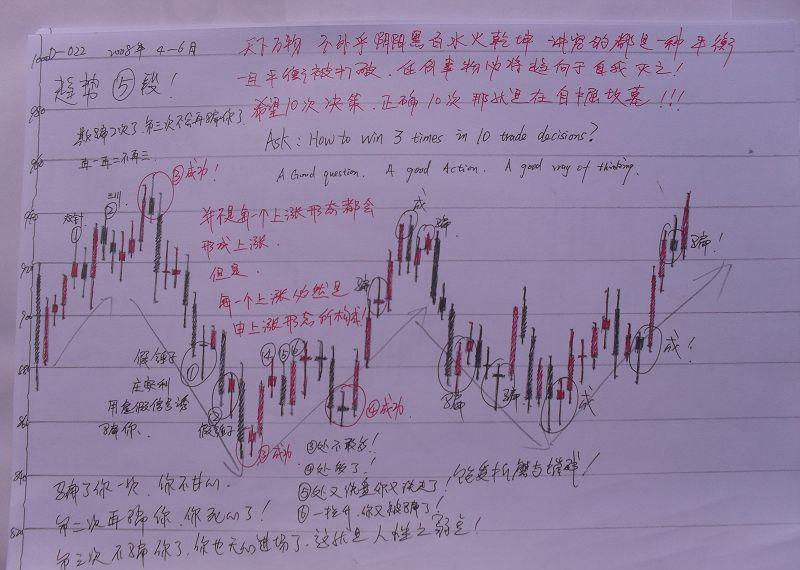 D-022 2008年 4-6月
天下万物 不外乎阴阳黑白水火乾坤 讲究的都是一种平衡
一旦平衡被打破，任何事物必将趋向于自我灭亡！
希望10次决策，正确10次那就是在自掘坟墓！！！
趋势⑤段！
欺骗2次了，第三次不会再骗你了
再一再二不再三
Ask: How to win 3 times in 10 trade decisions?
A Good question. A good Action. A good way of thinking.
③成功！
②
①
并不是每一个上涨形态都会
形成上涨.
但是.
每一个上涨必然是
由上涨形态所构成！
成
骗
骗
骗！
980
960
940
920
900
880
860
840
820
假锤子
庄家利
用虚假信号诱
骗你.
①
②
假锤子
③成功
④
⑤
⑥
④成功
骗
骗
成
成！
③处不敢做！
④处做了！
⑤处又洗盘你又洗走了！
⑥一拉升，你又被骗了！
骗了你一次，你不甘心.
第二次再骗你，你死心了！
第三次不骗你了，你也无心进场了，这就是人性之弱点！